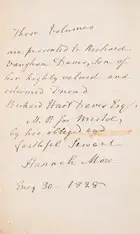 These Volumes
are presented to Richard
Vaughan Davis, son of
her highly valued and
esteemed Friend
Richard Hart Davis Esq.
M. P. for Bristol,
by his obliged and
faithful Servant
Hannah More
30 - 1828